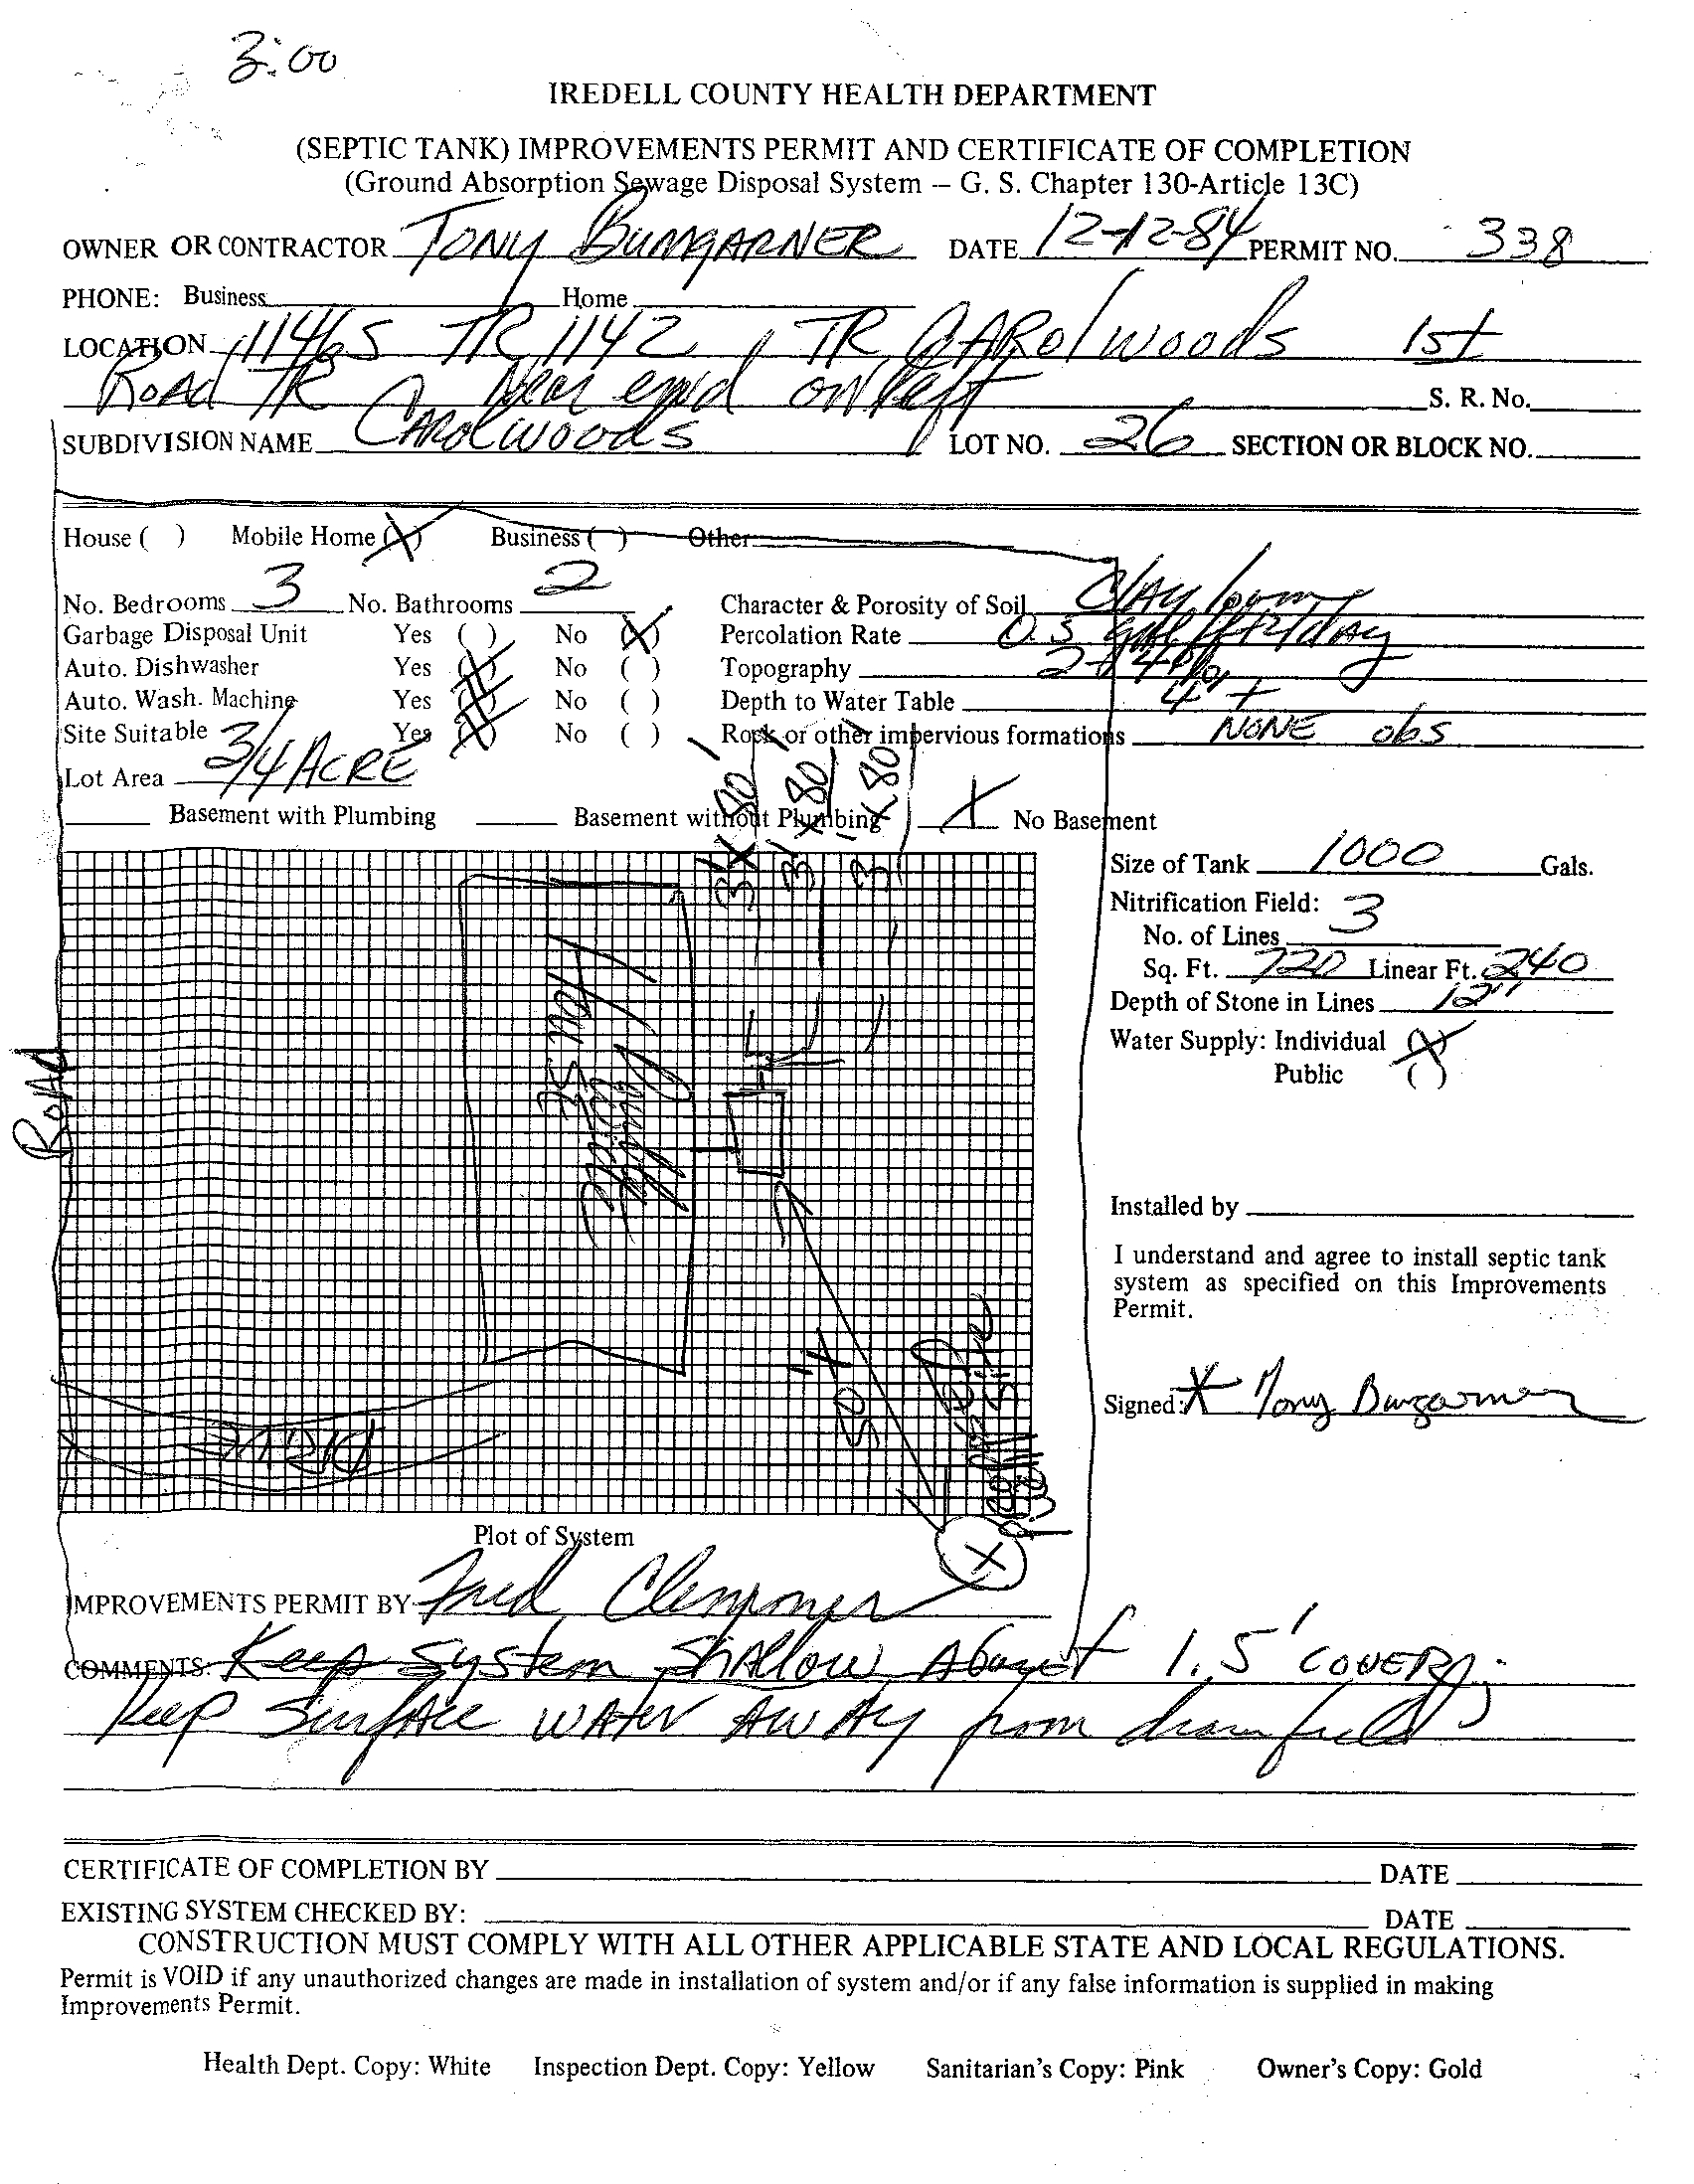 3:00
IREDELL COUNTY HEALTH DEPARTMENT
(SEPTIC TANK) IMPROVEMENTS PERMIT AND CERTIFICATE OF COMPLETION
(Ground Absorption Sewage Disposal System – G. S. Chapter 130-Article 13C)
OWNER OR CONTRACTOR TONY BUMGARNER DATE 12-12-84 PERMIT NO. 338
PHONE: Business Home
LOCATION 1146S TR 1142, TR CAROlwoods 1st
ROAD TR Near end on left S. R. No.
SUBDIVISION NAME CAROLwoods LOT NO. 26 SECTION OR BLOCK NO.
House ( ) Mobile Home (X) Business ( ) Other
No. Bedrooms 3 No. Bathrooms 2 Character & Porosity of Soil CLAY loam
Garbage Disposal Unit Yes ( ) No (X) Percolation Rate 0.3 gal/ft2/day
Auto. Dishwasher Yes (X) No ( ) Topography 2-4%
Auto. Wash. Machine Yes (X) No ( ) Depth to Water Table 4'+
Site Suitable Yes (X) No ( ) Rock or other impervious formations NONE obs
Lot Area 3/4 ACRE
Basement with Plumbing Basement without Plumbing X No Basement
3' X 80'
3' X 80'
3' X 80'
Size of Tank 1000 Gals.
Nitrification Field:
No. of Lines 3
Sq. Ft. 720 Linear Ft. 240
Depth of Stone in Lines 12"
Water Supply: Individual (X)
Public ( )
ROAD
50'+
Installed by
I understand and agree to install septic tank
system as specified on this Improvements
Permit.
Signed: X Tony Bumgarner
Plot of System
IMPROVEMENTS PERMIT BY Fred Clemmer
COMMENTS: Keep System Shallow About 1.5' COVER;
Keep Surface WAter AWAy from drainfield
CERTIFICATE OF COMPLETION BY DATE
EXISTING SYSTEM CHECKED BY: DATE
CONSTRUCTION MUST COMPLY WITH ALL OTHER APPLICABLE STATE AND LOCAL REGULATIONS.
Permit is VOID if any unauthorized changes are made in installation of system and/or if any false information is supplied in making
Improvements Permit.
Health Dept. Copy: White Inspection Dept. Copy: Yellow Sanitarian's Copy: Pink Owner's Copy: Gold